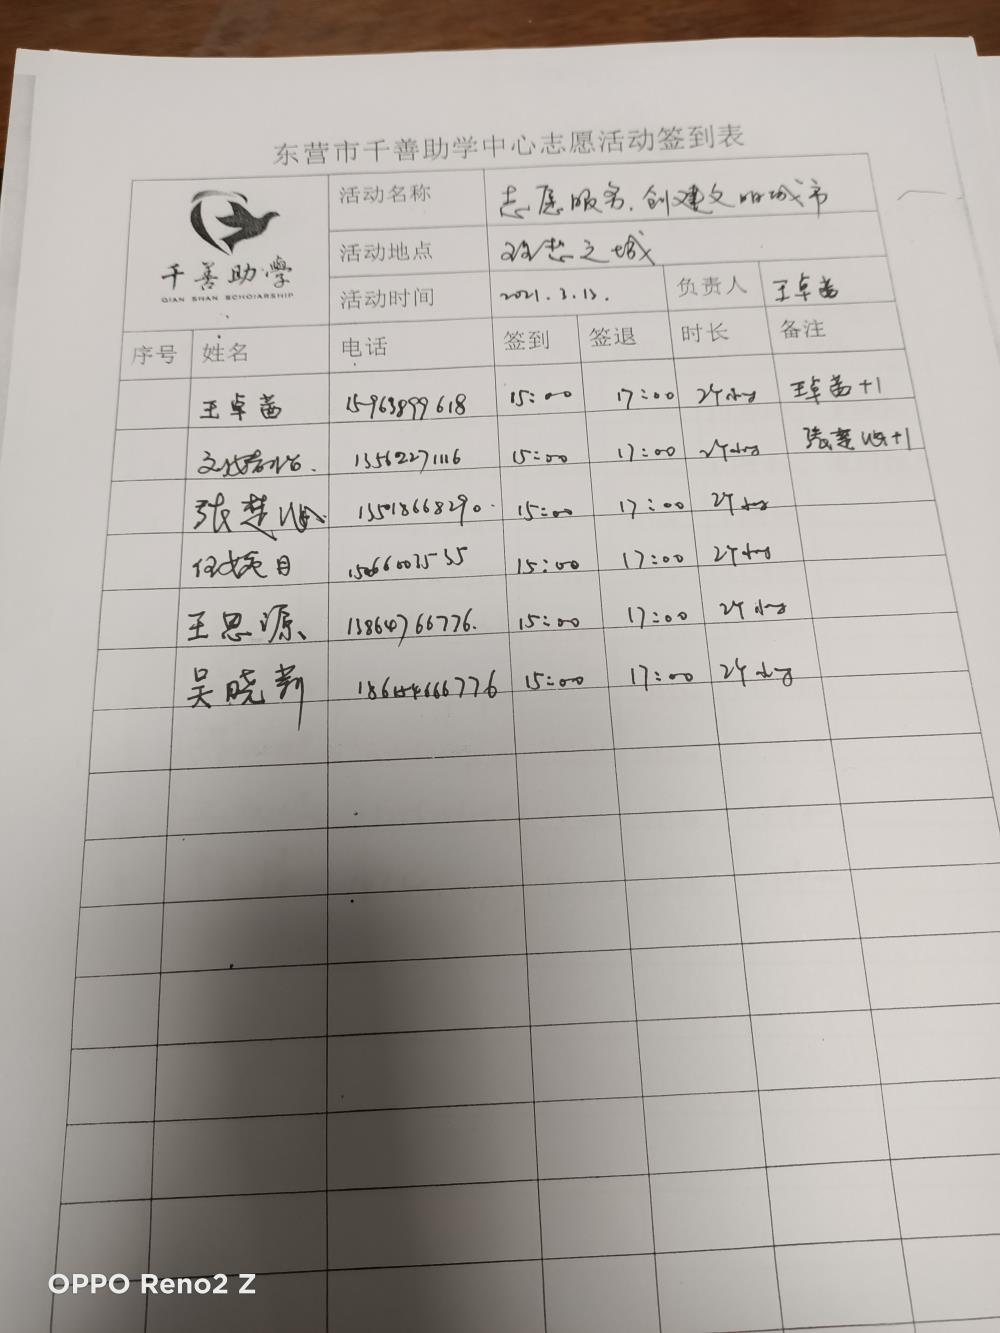 东营市千善助学中心志愿活动签到表
千善助學
QIAN SHAN SCHOLARSHIP
活动名称 志愿服务.创建文明城市
活动地点 之城
活动时间 2021.3.13. 负责人 王卓茜
序号 姓名 电话 签到 签退 时长 备注
王卓茜 15963899618 15:00 17:00 2个小时 王卓茜+1
13562271116 15:00 17:00 2个小时 张楚+1
张楚 13518668290. 15:00 17:00 2个小时
15:00 17:00 2个小时
王思源 13864766776. 15:00 17:00 2个小时
吴晓莉 15:00 17:00 2个小时
OPPO Reno2 Z